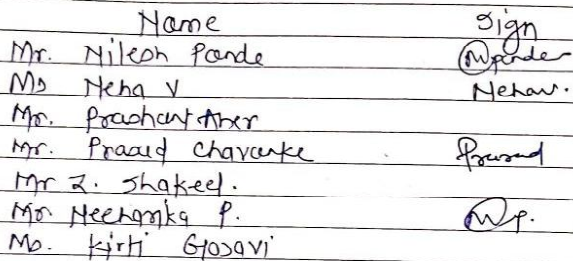 Name Sign
Mr. Nilesh Pande Npande
Ms Neha V Nehav.
Mr. Prashant Aher
Mr. Prasad Chavanke Prasad
Mr Z. Shakeel.
Mr. Neehanka P. Np.
Ms. Kirti Gosavi